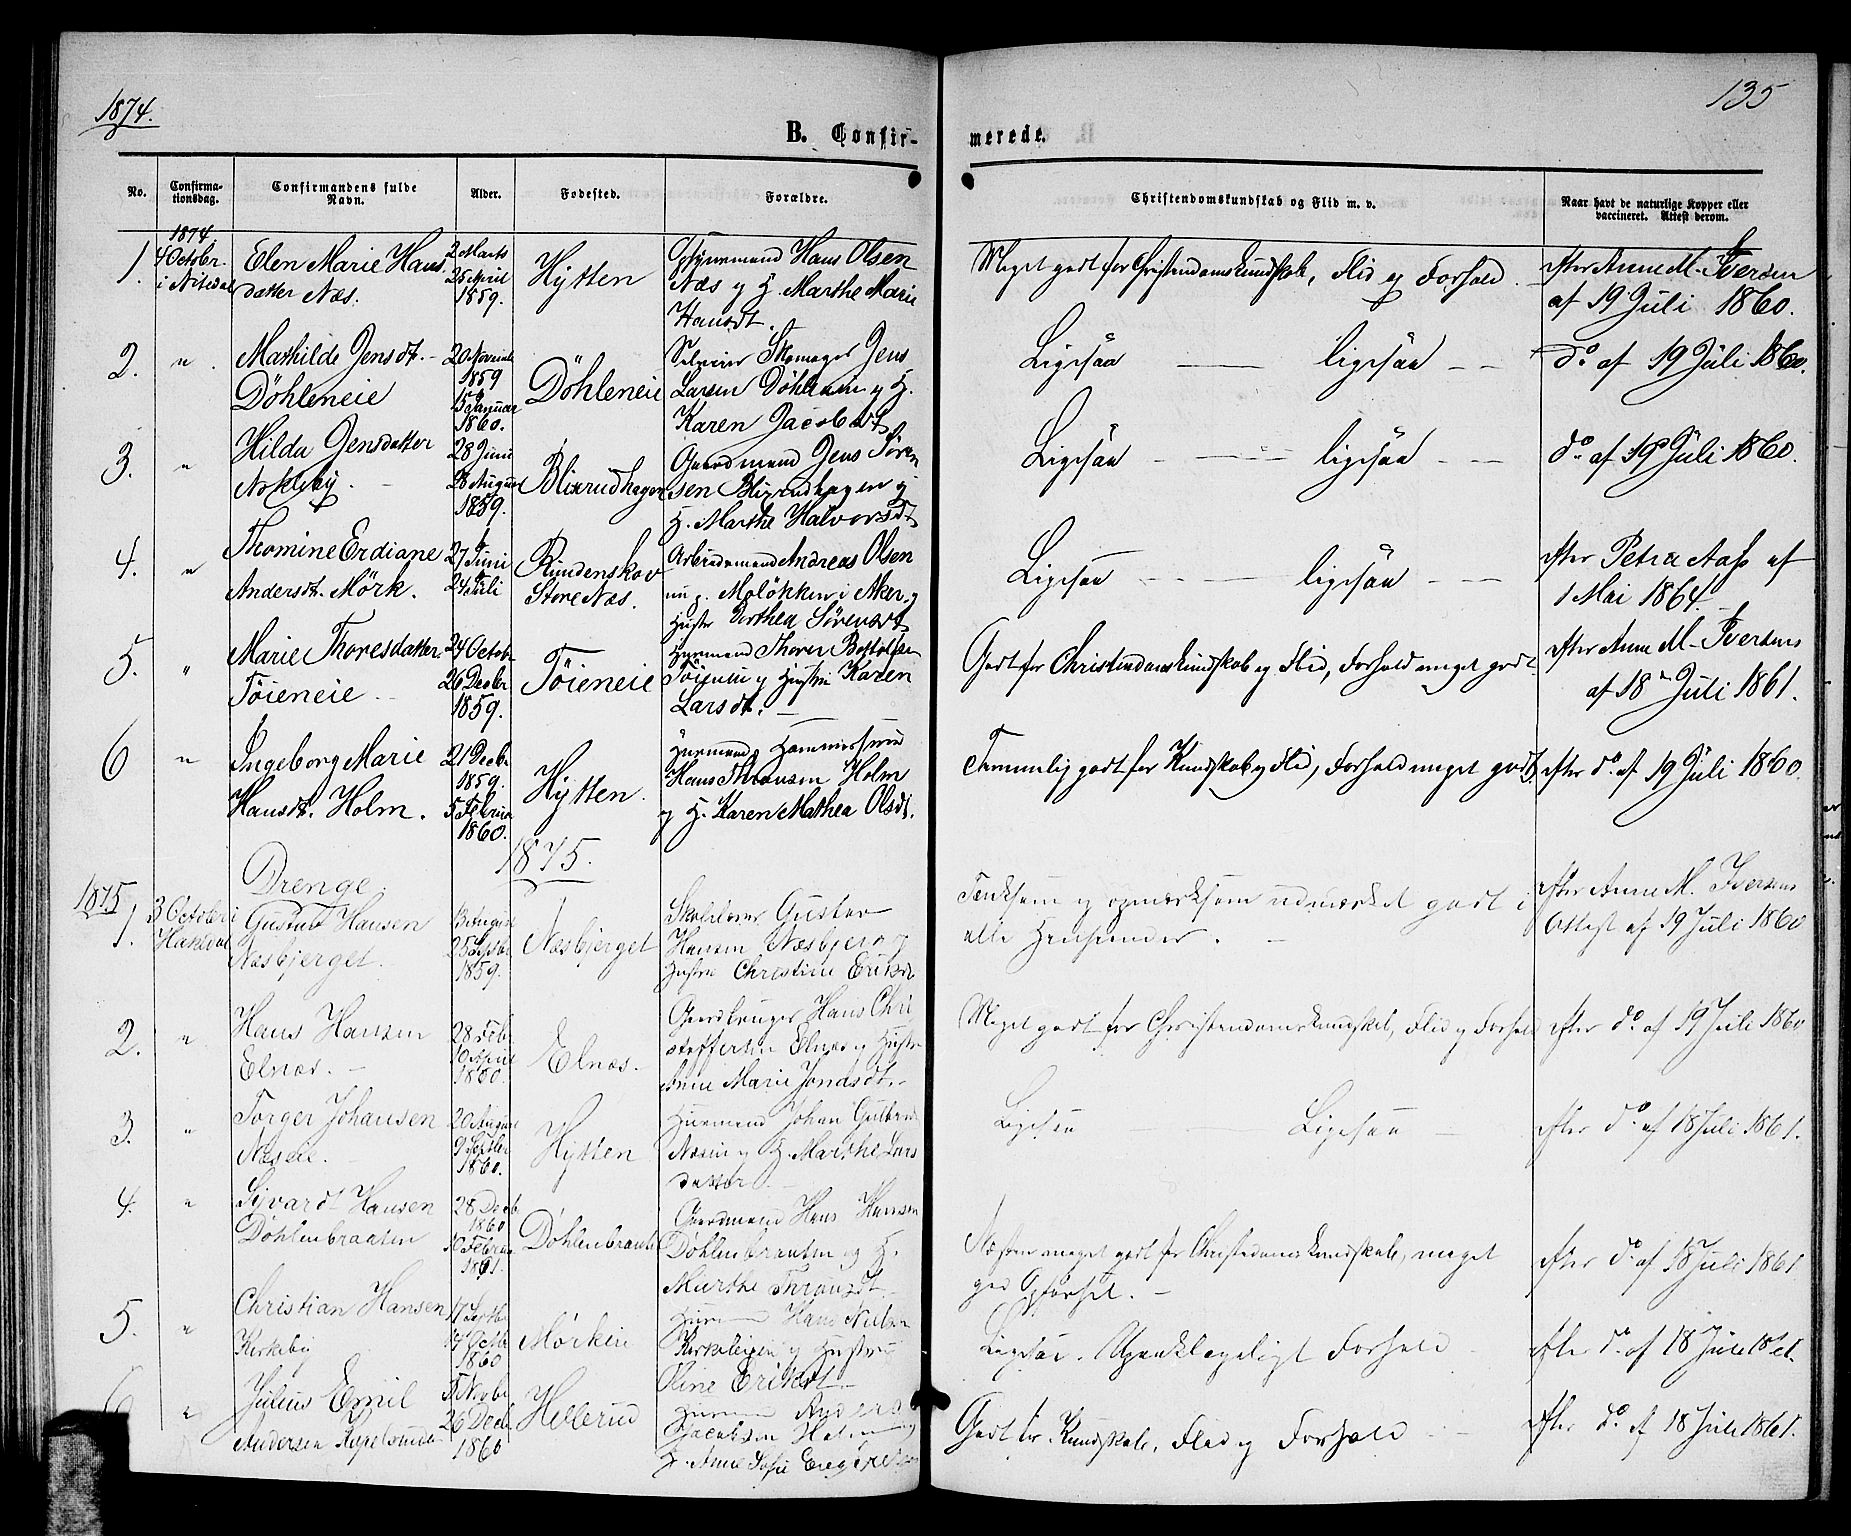 1874.
135
B. Confir-
merede.
No.
Confirma-
tionsdag.
Confirmandens fulde
Navn.
Alder.
Fødested.
Forældre.
Christendomskundskab og Flid m. v.
Naar havt de naturlige Kopper eller
vaccineret. Attest derom.
1874
1.
4 Octobr.
i Nitedal
Elen Marie Hans
datter Næs.
2 Marts
25 April
1859.
Hytten
Hans Olsen
Næs og H. Marthe Marie
Hansdt.
Meget godt for Christendomskundskab, Flid og Forhold.
efter Anne M. Iversen
af 19 Juli 1860.
2.
"
Mathilde Jensdt.
Döhleneie
20 Novembr
1859
15 Januar
1860.
Döhleneie
Skomager Jens
Larsen Döhleneie og H.
Karen Jacobsdt
Ligesaa — ligesaa - -
do af 19 Juli 1860.
3.
"
Hilda Jensdatter
28 Juni
28 August
1859.
Blixrudhagen
Gaardmand Jens Sören
sen Blixrudhagen og
H. Marthe Halvorsdt
Ligesaa - ligesaa - -
do af 19 Juli 1860.
4.
"
Thomine Erdiane
Andersdt. Mörk.
27 Juni
24 Juli
Rundenskov
Store Næs.
Arbeidsmand Andreas Olsen
Moløkken i Aker og
Hustr Dorthea Sörensdt
Ligesaa - - ligesaa - -
efter Petra Aas af
1 Mai 1864.
5.
"
Marie Thoresdatter
Töieneie
24 Octobr
26 Decbr
1859.
Töieneie
Huusmand Thorer Bottolfsen
Töieneie og Hustru Karen
Larsdt.
Godt for Christendomskundskab og Flid, Forhold meget godt.
efter Anne M. Iversens
af 18 Juli 1861.
6
"
Ingeborg Marie
Hansdt. Holm.
21 Decbr
1859.
5 Februar
1860.
Hytten.
Huusmand
Hans Thronsen Holm
og H. Karen Mathea Olsdt.
Temmelig godt for Kundskab og Flid, Forhold meget godt.
efter do af 19 Juli 1860.
1875.
Drenge.
1875
1.
3 October i
Hakedal
Gustav Hansen
Næsbjerget.
13 August
25 Septbr
1859.
Næsbjerget
Skolelærer Gustav
Hansen Næsbjerg og
Hustru Christine Eriksdt
Tænksom og opmærksom udmærket godt i
alle Henseender.
efter Anne M. Iversens
Attest af 19 Juli 1860
2.
"
Hans Hansen
Elnæs.
28 Febr
10 April
1860.
Elnæs.
Gaardbruger Hans Chri
stoffersen Elnæs og Hustru
Anne Marie Jonasdt.
Meget godt for Christendomskundskab, Flid og Forhold
efter do. af 19 Juli 1860
3.
"
Torger Johansen
Næseie.
20 August
9 Septbr
1860.
Hytten
Huusmand Johan Gulbrands
Næseie og H. Marthe Lars
datter
Ligesaa — Ligesaa
efter do. af 18 Juli 1861.
4.
"
Sivardt Hansen
Döhlenbraaten
28 Decb
1860
10 Februar
1861.
Döhlenbraaten
Gaardmand Hans Hansen
Döhlenbraaten og H.
Marthe Thronsdt.
Næsten meget godt for Christendomskundskab, meget
god Opførsel.
efter do. af 18 Juli 1861
5.
"
Christian Hansen
Kirkeby
17 Septbr
14 Octbr
1860
Mörkeie
Huusmand Hans Nielsen
Kirkebyeie og Hustru
Oline Eriksdt
Ligesaa. Upaaklageligt Forhold
efter do. af 18 Juli 1861.
6
"
Julius Emil
Andersen
5 Novbr
26 Decbr
1860
Hellerud
Huusmand Anders
Jacobsen Holm og
H. Anne Sofie
Godt for Kundskab, Flid og Forhold
efter do. af 18 Juli 1861.